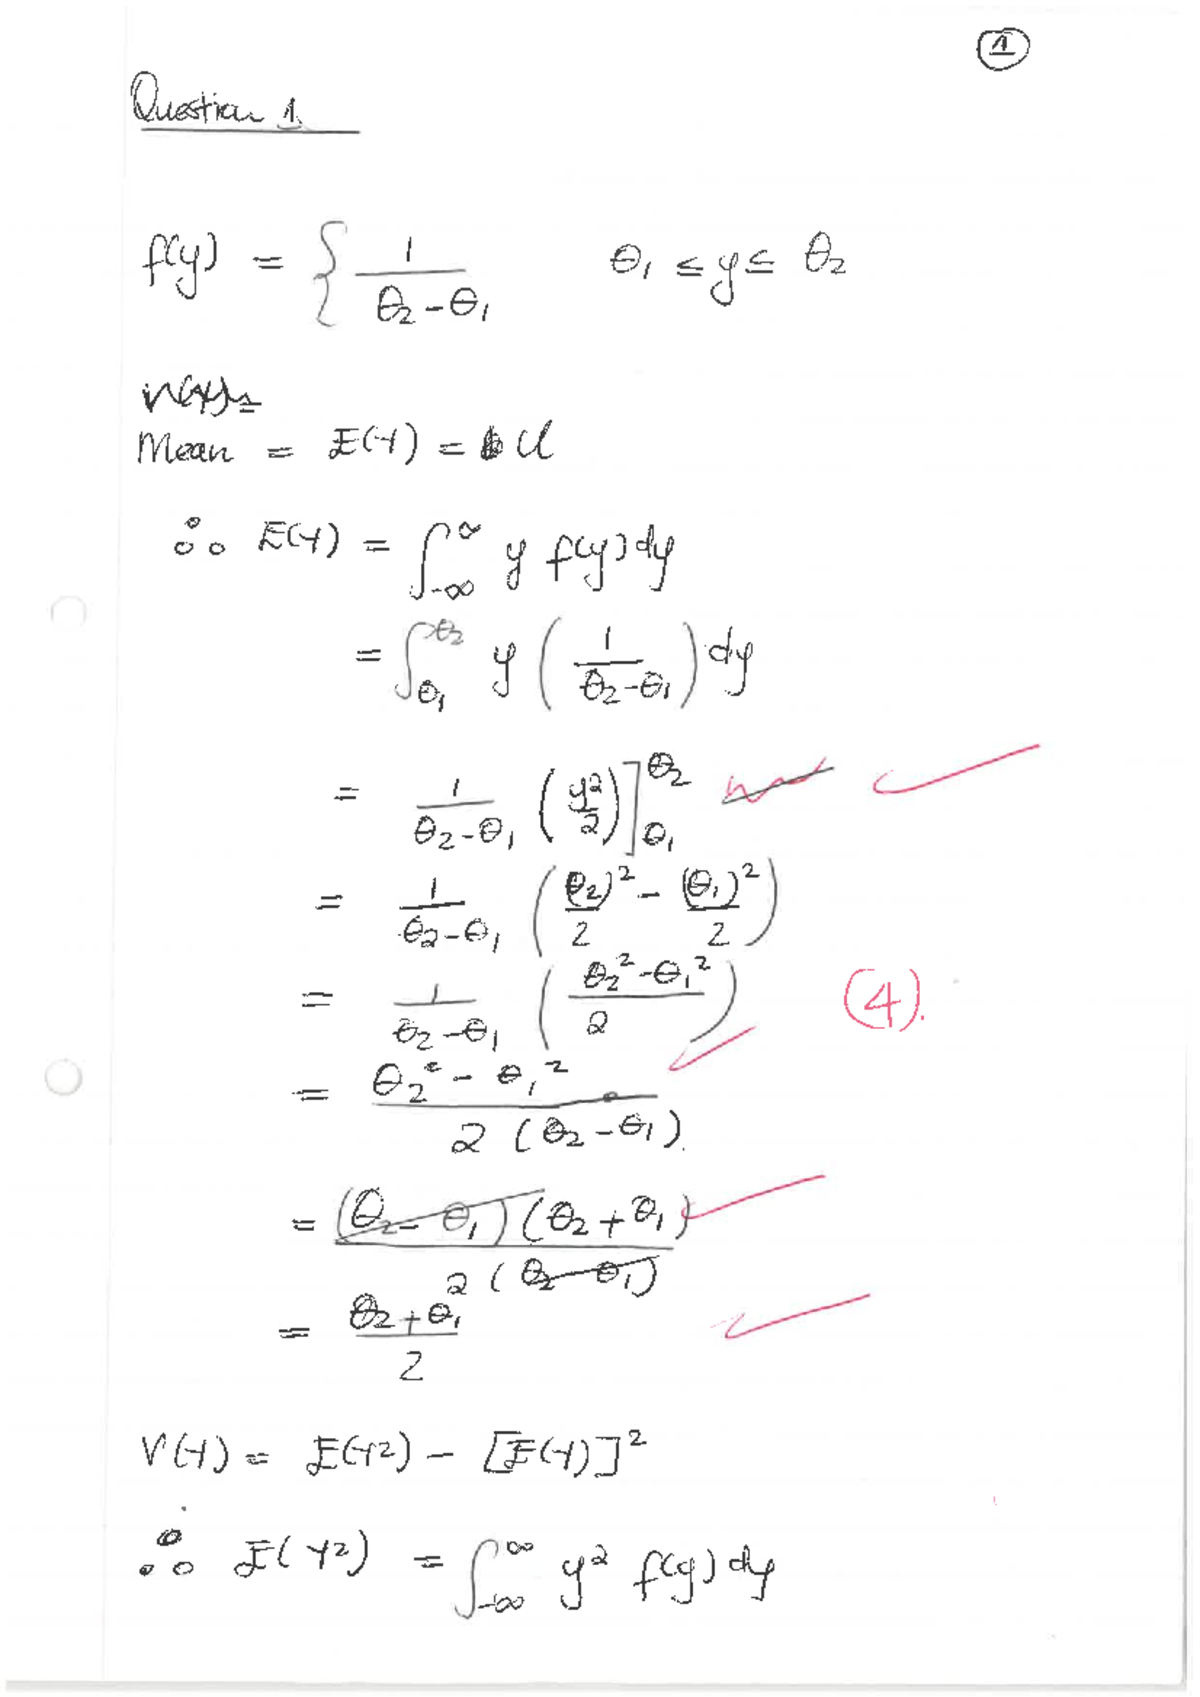 1
Question 1
f(y) = { 1/(θ₂-θ₁)    θ₁ ≤ y ≤ θ₂
Mean = E(Y) = u
∴ E(Y) = ∫_{-∞}^{∞} y f(y) dy
= ∫_{θ₁}^{θ₂} y (1/(θ₂-θ₁)) dy
= 1/(θ₂-θ₁) (y²/2)]_{θ₁}^{θ₂}
= 1/(θ₂-θ₁) ((θ₂)²/2 - (θ₁)²/2)
= 1/(θ₂-θ₁) ((θ₂²-θ₁²)/2)
(4).
= (θ₂² - θ₁²)/(2(θ₂-θ₁))
= (θ₂-θ₁)(θ₂+θ₁)/(2(θ₂-θ₁))
= (θ₂+θ₁)/2
V(Y) = E(Y²) - [E(Y)]²
∴ E(Y²) = ∫_{-∞}^{∞} y² f(y) dy